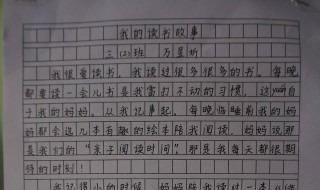 我的读书故事
三(2)班 万星妤
我很爱读书。我读过很多很多的书。每晚
都要读一会儿书是我雷打不动的习惯。这yuán自
于我的妈妈。从我记事起。每晚临睡前我的妈
妈都会选几本有趣的绘本陪我阅读。妈妈说那
是我们的“亲子阅读时间”那是我每天都很期
待的时刻!
我记得小的时候 妈妈陪我读过一本